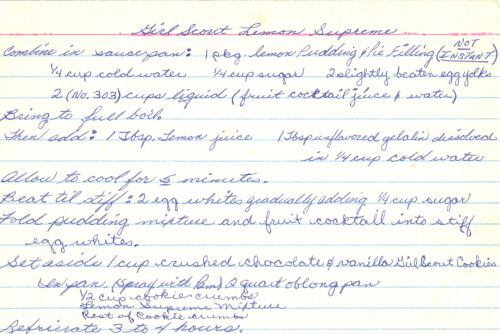 Girl Scout Lemon Supreme
Combine in saucepan: 1 pkg. lemon Pudding & Pie Filling (NOT INSTANT)
1/4 cup cold water 1/4 cup sugar 2 slightly beaten egg yolks
2 (No. 303) cups liquid (fruit cocktail juice & water)
Bring to full boil.
Then add: 1 Tbsp. Lemon juice 1 Tbsp unflavored gelatin dissolved
in 1/4 cup cold water
Allow to cool for 5 minutes.
Beat til stiff: 2 egg whites gradually adding 1/4 cup sugar
Fold pudding mixture and fruit cocktail into stiff
egg whites.
Set aside 1 cup crushed chocolate & vanilla Girl Scout Cookies
In pan (spray with Pam) 2 quart oblong pan
1/2 cup cookie crumbs
Lemon Supreme Mixture
Rest of Cookie crumbs
Refrigrate 3 to 4 hours.